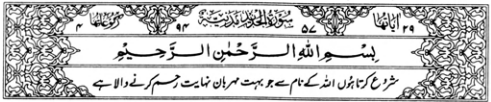 اٰیَاتُهَا ۲۹ ۵۷ سُوْرَةُ الْحَدِيْدِ مَدَنِيَّةٌ ۹۴ رُكُوْعَاتُهَا ۴
بِسْمِ اللهِ الرَّحْمٰنِ الرَّحِيْمِ
شروع کرتا ہوں اللہ کے نام سے جو بہت مہربان نہایت رحم کرنے والا ہے